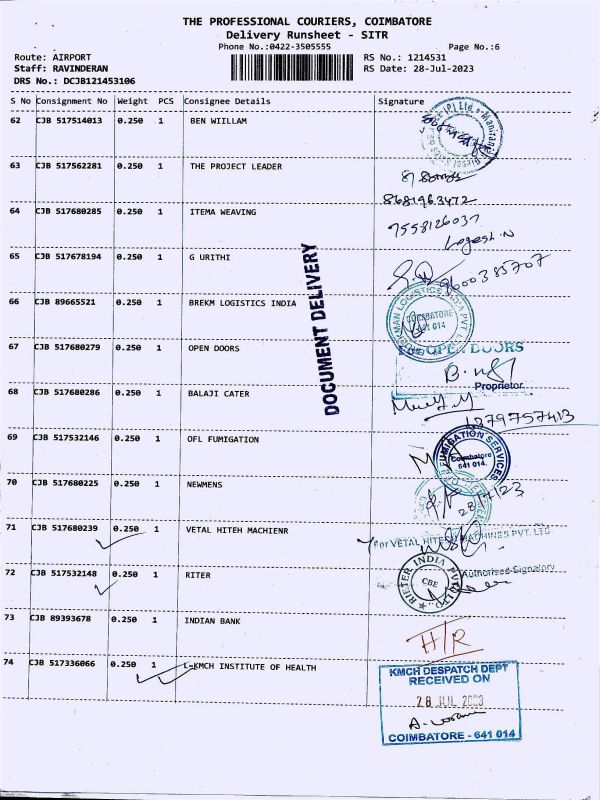 THE PROFESSIONAL COURIERS, COIMBATORE
Delivery Runsheet - SITR
Phone No.:0422-3505555 Page No.:6
Route: AIRPORT RS No.: 1214531
Staff: RAVINDERAN RS Date: 28-Jul-2023
DRS No.: DCJB121453106
S No Consignment No Weight PCS Consignee Details Signature
62 CJB 517514013 0.250 1 BEN WIILLAM
63 CJB 517562281 0.250 1 THE PROJECT LEADER
8681963472
64 CJB 517680285 0.250 1 ITEMA WEAVING
7558126031
Logesh.N
65 CJB 517678194 0.250 1 G URITHI
9600385707
66 CJB 89665521 0.250 1 BREKM LOGISTICS INDIA
COIMBATORE
641 014
DOCUMENT DELIVERY
67 CJB 517680279 0.250 1 OPEN DOORS
OPEN DOORS
Proprietor
68 CJB 517680286 0.250 1 BALAJI CATER
69 CJB 517532146 0.250 1 OFL FUMIGATION
FUMIGATION SERVICES
Coimbatore
641 014.
70 CJB 517680225 0.250 1 NEWMENS
28/7/23
71 CJB 517680239 0.250 1 VETAL HITEH MACHIENR
For VETAL HITECH MACHINES PVT. LTD
Authorised Signatory
72 CJB 517532148 0.250 1 RITER
RIETER INDIA PVT. LTD.,
CBE
73 CJB 89393678 0.250 1 INDIAN BANK
H/R
74 CJB 517336066 0.250 1 L-KMCH INSTITUTE OF HEALTH
KMCH DESPATCH DEPT
RECEIVED ON
COIMBATORE - 641 014